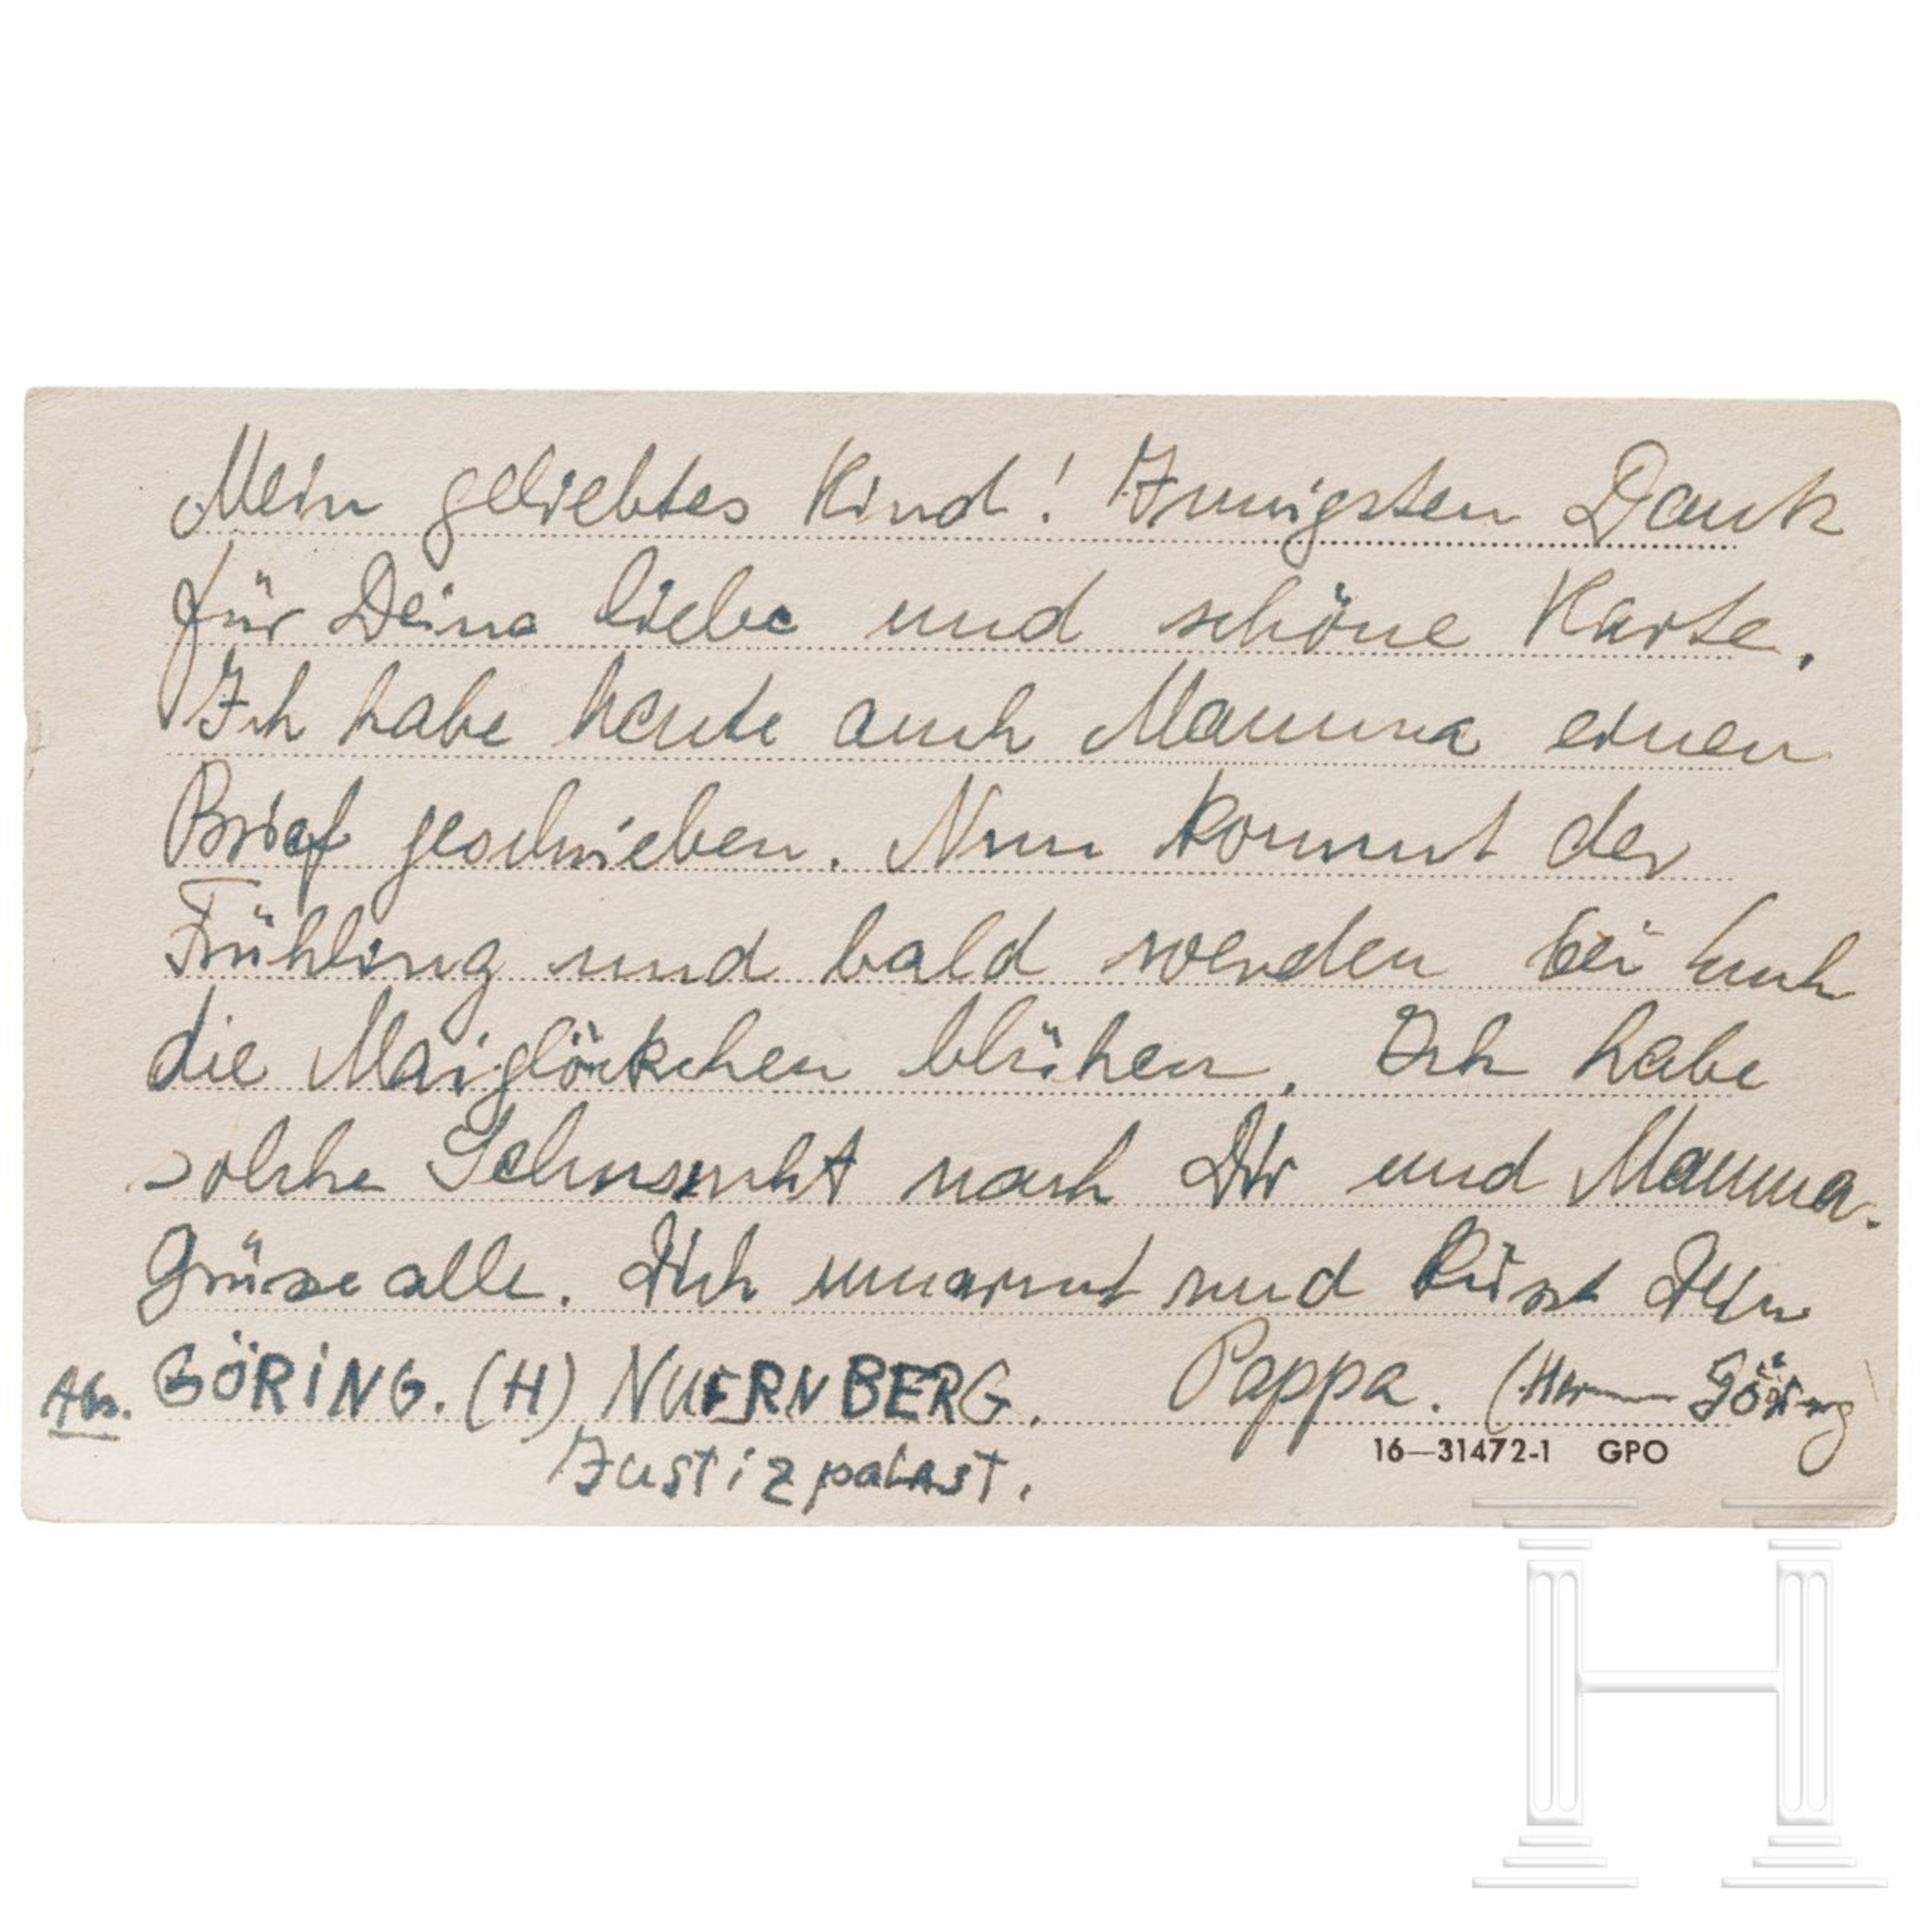 Mein geliebtes Kind! Innigsten Dank
für Deine liebe und schöne Karte.
Ich habe heute auch Mamma einen
Brief geschrieben. Nun kommt der
Frühling und bald werden bei Euch
die Maiglöckchen blühen. Ich habe
solche Sehnsucht nach Dir und Mamma.
Grüsse alle. Dich umarmt und küsst Dein
Abs. GÖRING. (H) NUERNBERG. Pappa. (Hermann Göring
Justizpalast.
16—31472-1 GPO
H